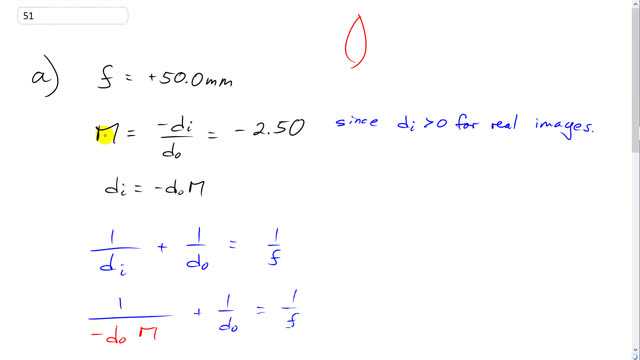 51
a) f = +50.0mm
M = -di/do = -2.50 since di > 0 for real images.
di = -do M
1/di + 1/do = 1/f
1/(-do M) + 1/do = 1/f